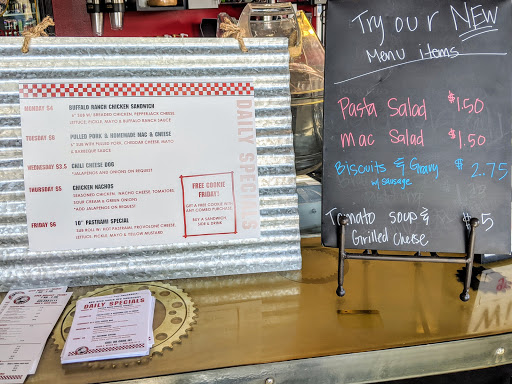 MONDAY $4 BUFFALO RANCH CHICKEN SANDWICH
LETTUCE, PICKLE, MAYO & BUFFALO RANCH SAUCE
TUESDAY $6 PULLED PORK & HOMEMADE MAC & CHEESE
& BARBEQUE SAUCE
WEDNESDAY $3.5 CHILI CHEESE DOG
*JALAPENOS AND ONIONS ON REQUEST
THURSDAY $5 CHICKEN NACHOS
SEASONED CHICKEN, NACHO CHEESE, TOMATOES
SOUR CREAM & GREEN ONIONS
*ADD JALAPENOS ON REQUEST
FRIDAY $6 10" PASTRAMI SPECIAL
LETTUCE, PICKLE, MAYO & YELLOW MUSTARD
DAILY SPECIALS
FREE COOKIE
FRIDAY!
GET A FREE COOKIE W/
ANY COMBO PURCHASE
BUY A SANDWICH
SIDE & DRINK
DAILY SPECIALS
Try our NEW
Menu items
Pasta Salad $1.50
Mac Salad $1.50
Biscuits & Gravy $2.75
w/ sausage
Tomato soup & $5
Grilled Cheese